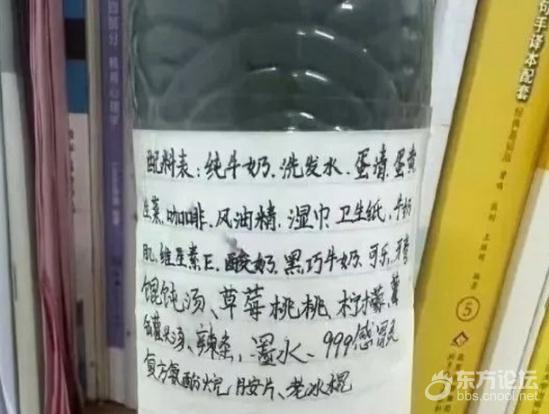 配料表:纯牛奶、洗发水、蛋清、蛋黄
生菜、咖啡、风油精、湿巾、卫生纸、牛奶
肌、维生素E、酸奶、黑巧牛奶、可乐、牙膏
馄饨汤、草莓桃桃、柠檬、
罐头汤、辣条、墨水、999感冒灵
复方氨酚烷胺片、老冰棍
手译本配套
5
东方论坛
bbs.cnool.net